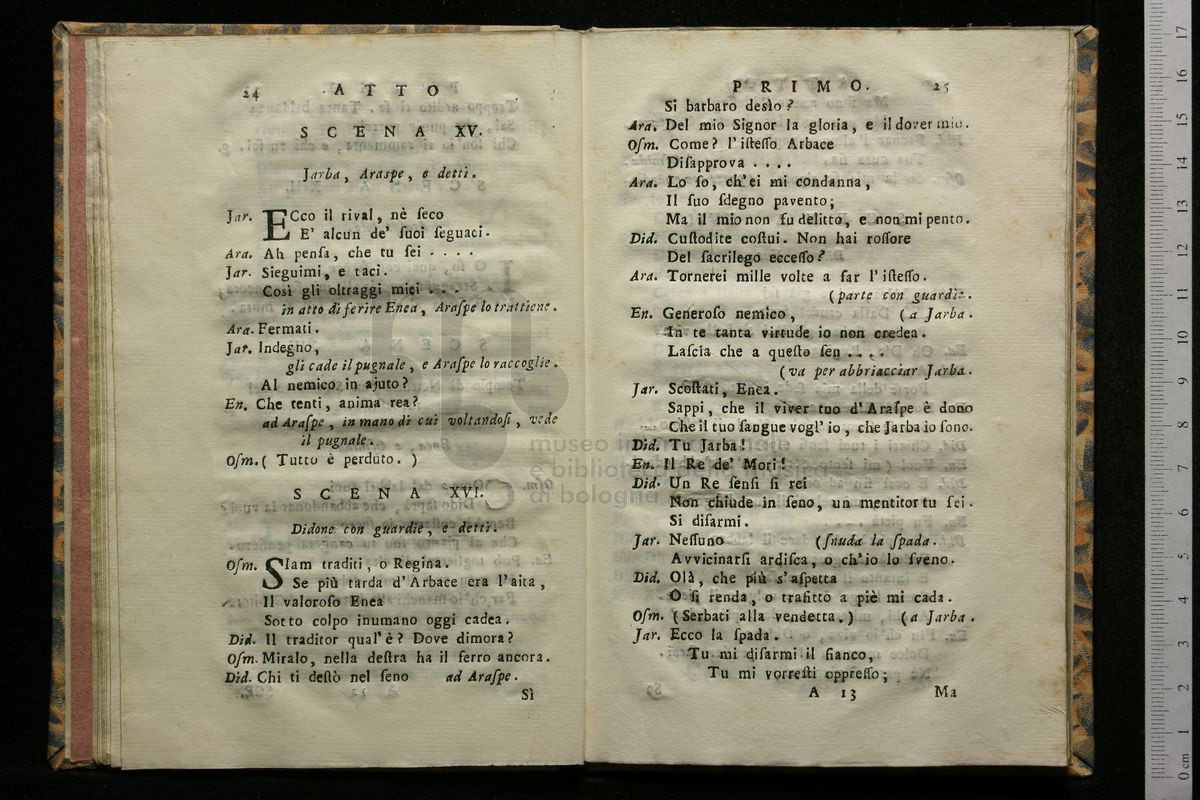 24 ATTO
SCENA XV.
Jarba, Araspe, e detti.
Jar. ECco il rival, nè ſeco
E' alcun de' ſuoi ſeguaci.
Ara. Ah penſa, che tu ſei ....
Jar. Sieguimi, e taci.
Così gli oltraggi miei ...
in atto di ferire Enea, Araſpe lo trattiene.
Ara. Fermati.
Jar. Indegno,
gli cade il pugnale, e Araſpe lo raccoglie.
Al nemico in ajuto?
En. Che tenti, anima rea?
ad Araſpe, in mano di cui voltandoſi, vede
il pugnale.
Oſm. ( Tutto è perduto. )
SCENA XVI.
Didone con guardie, e detti.
Oſm. SIam traditi, o Regina.
Se più tarda d'Arbace era l'aita,
Il valoroſo Enea
Sotto colpo inumano oggi cadea.
Did. Il traditor qual'è? Dove dimora?
Oſm. Miralo, nella deſtra ha il ferro ancora.
Did. Chi ti deſtò nel ſeno ad Araſpe.
Sì
PRIMO. 25
Sì barbaro desìo?
Ara. Del mio Signor la gloria, e il dover mio.
Oſm. Come? l'iſteſſo Arbace
Diſapprova ....
Ara. Lo ſo, ch'ei mi condanna,
Il ſuo ſdegno pavento;
Ma il mio non fu delitto, e non mi pento.
Did. Cuſtodite coſtui. Non hai roſſore
Del ſacrilego ecceſſo?
Ara. Tornerei mille volte a far l'iſteſſo.
(parte con guardie.
En. Generoſo nemico, (a Jarba.
In te tanta virtude io non credea.
Laſcia che a queſto ſen ....
(va per abbriacciar Jarba.
Jar. Scoſtati, Enea.
Sappi, che il viver tuo d'Araſpe è dono
Che il tuo ſangue vogl'io, che Jarba io ſono.
Did. Tu Jarba!
En. Il Re de' Mori!
Did. Un Re ſenſi ſi rei
Non chiude in ſeno, un mentitor tu ſei.
Si diſarmi.
Jar. Neſſuno (ſnuda la ſpada.
Avvicinarſi ardiſca, o ch'io lo ſveno.
Did. Olà, che più s'aſpetta
O ſi renda, o trafitto a piè mi cada.
Oſm. (Serbati alla vendetta.) (a Jarba.
Jar. Ecco la ſpada.
Tu mi diſarmi il fianco,
Tu mi vorreſti oppreſſo;
A 13 Ma
museo
e biblioteca
di bologna
0 cm 1 2 3 4 5 6 7 8 9 10 11 12 13 14 15 16 17